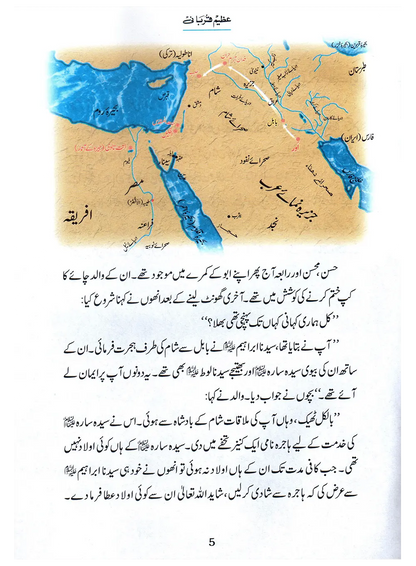 عظیم قربانی
بحیرہ قزوین (بحیرہ خزر)
اناطولیہ (ترکی)
طبرستان
نینوی
جزیرہ
شام
قبرص
دمشق
بحیرہ روم
بابل
صحرائے شام
فارس (ایران)
صحرائے نفود
مصر
جزیرہ نمائے عرب
افریقہ
نجد
صحرائے نوبہ
حسن، محسن اور رابعہ آج پھر اپنے ابو کے کمرے میں موجود تھے۔ ان کے والد چائے کا
کپ ختم کرنے کی کوشش میں تھے۔ آخری گھونٹ لینے کے بعد انھوں نے کہنا شروع کیا:
’’کل ہماری کہانی کہاں تک پہنچی تھی بھلا؟‘‘
’’آپ نے بتایا تھا، سیدنا ابراہیم علیہ السلام نے بابل سے شام کی طرف ہجرت فرمائی۔ ان کے
ساتھ ان کی بیوی سیدہ سارہ علیہا السلام اور بھتیجے سیدنا لوط علیہ السلام بھی تھے۔ یہ دونوں آپ پر ایمان لے
آئے تھے۔‘‘ بچوں نے جواب دیا۔ والد نے کہا:
’’بالکل ٹھیک، وہاں آپ کی ملاقات شام کے بادشاہ سے ہوئی۔ اس نے سیدہ سارہ علیہا السلام
کی خدمت کے لیے ہاجرہ نامی ایک کنیز تحفے میں دی۔ سیدہ سارہ علیہا السلام کے ہاں کوئی اولاد نہیں
تھی۔ جب کافی مدت تک ان کے ہاں اولاد نہ ہوئی تو انھوں نے خود ہی سیدنا ابراہیم علیہ السلام
سے عرض کی کہ ہاجرہ سے شادی کر لیں، شاید اللہ تعالیٰ ان سے کوئی اولاد عطا فرما دے۔
5